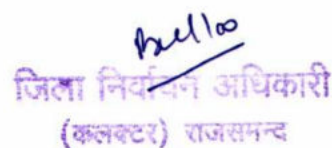 जिला निर्वाचन अधिकारी
(कलक्टर) राजसमन्द